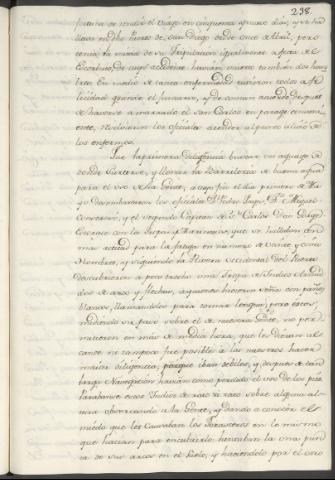 238.
fortuna se rendio el Viage en cinquenta y nueve dias, y se ha
llava en dho Puerto de San Diego desde once de Abril, pero
tenia la maior de su Tripulacion igualmente a fecta de
Escorbuto, de cuyo accidente havian muerto tambien dos hom
bres. En medio de tanta enfermedad tuvieron todos a fe
licidad grande el juntarse, y de comun acuerdo despues
de haverse amarrado el San Carlos en parage conveni
ente, resolvieron los oficiales atender al pronto alivio de
los enfermos.
Fue la primera diligencia buscar un aguage de
donde surtirse, y llenar la Barrileria de buena agua
para el uso de la Gente, a cuyo fin el dia primero de Ma
yo Desembarcaron los oficiales Dn Pedro Fages, Dn Miguel
Costansó, y el segundo Capitan del Sn Carlos Dn Jorge
Estorace con la Tropa y Marineros que se hallaban con
mas actitud para la fatiga en numero de veinte y cinco
Hombres, y siguiendo la Rivera Occidental del Puerto
descubrieron a poco trecho una tropa de Indios Armad
dos de arco y flechas, a quienes hicieron señas con paños
blancos, llamandolos para tomar lengua; pero estos,
midiendo su paso sobre el de nuestra Gente, no per
mitieron en mas de media hora, que les Diesen al
cance ni tampoco fue posible a los nuestros hacer
maior diligencia, porque iban debiles, y despues de tan
larga Navegacion havian como perdido el uso de los pies
parabanse estos Indios de rato en rato sobre alguna al
tura observando a la Gente, y dando a conocer el
miedo que les causaban los forasteros en lo mismo
que hacian para encubrirlo hincaban la una pun
ta de sus arcos en el suelo, y haciendolo por el otro